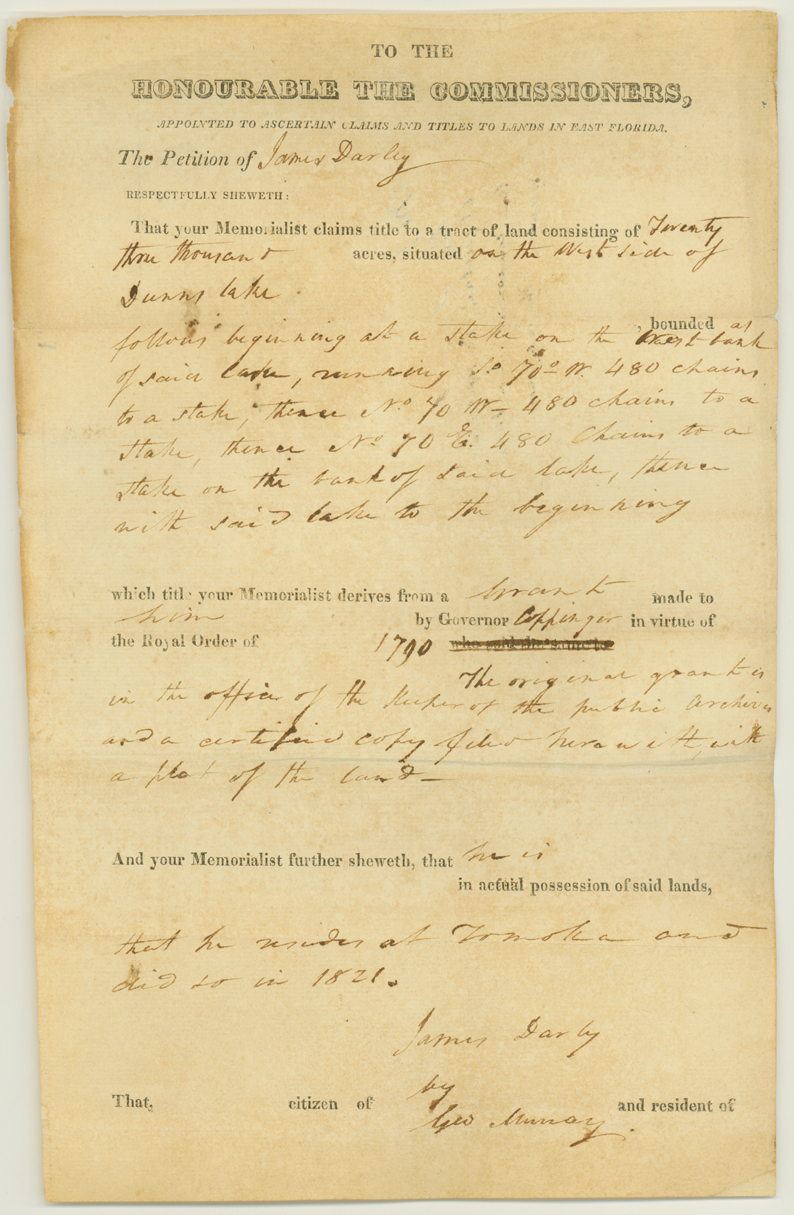 TO THE
HONOURABLE THE COMMISSIONERS,
APPOINTED TO ASCERTAIN CLAIMS AND TITLES TO LANDS IN EAST FLORIDA.
The Petition of James Darley
RESPECTFULLY SHEWETH:
That your Memorialist claims title to a tract of land consisting of Twenty
three thousand acres, situated on the West side of
Dunns lake.
, bounded as
follows beginning at a stake on the West bank
of said lake, running So 70o W. 480 chains
to a stake, thence No 70 W– 480 chains to a
stake, thence No 70 E. 480 Chains to a
stake on the bank of said lake, thence
with said lake to the beginning
which title your Memorialist derives from a Grant made to
him by Governor Coppinger in virtue of
the Royal Order of 1790 who said the same to
The original grant is
in the office of the Keeper of the public Archives
and a certified copy filed herewith, with
a plat of the land–
And your Memorialist further sheweth, that he is
in actual possession of said lands,
that he resides at Tomoka and
did so in 1821.
James Darley
by
That, citizen of and resident of
Geo Murray.